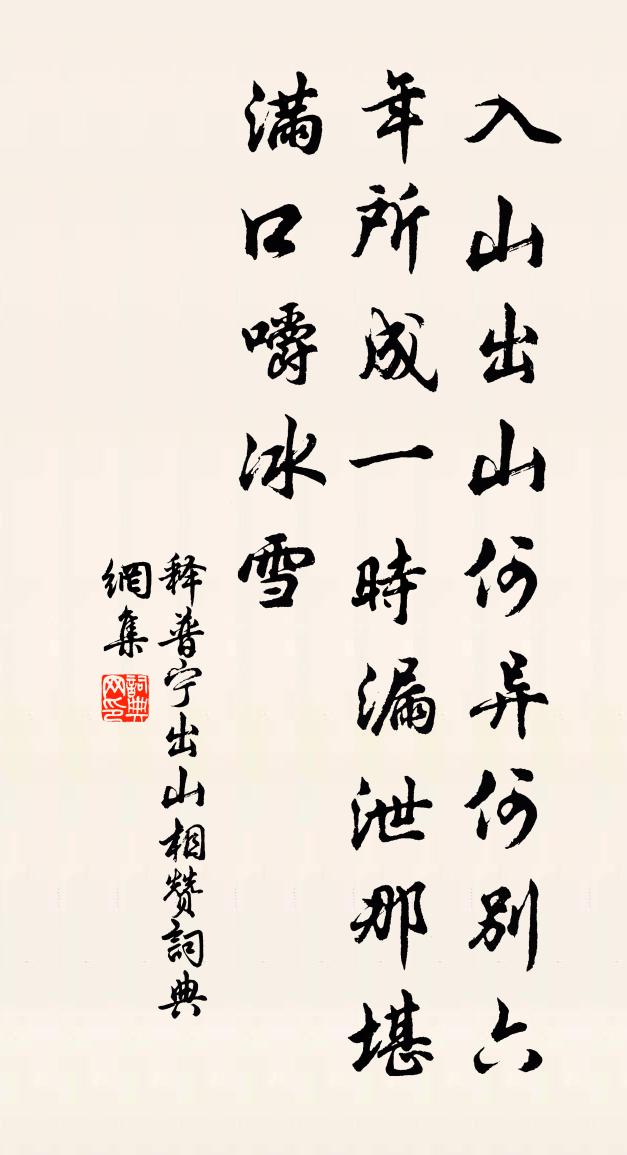 入山出山何异何别六
年所成一時漏泄那堪
滿口嚼冰雪
释普宁出山相赞詞典
網集
詞典
网印